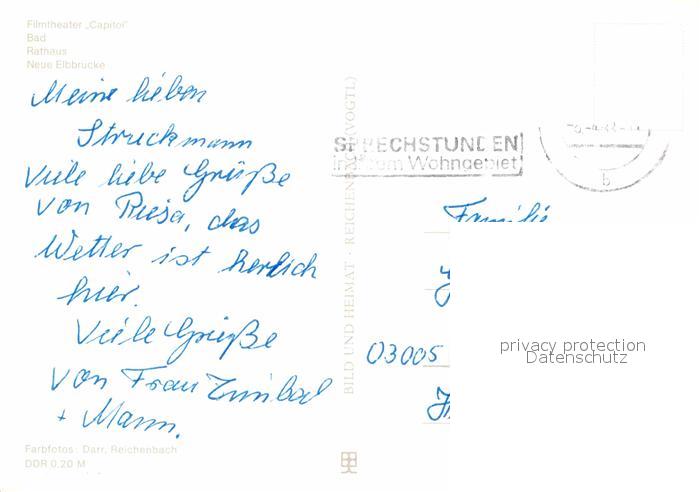 Filmtheater „Capitol"
Bad
Rathaus
Neue Elbbrücke
Meine lieben
Struckmann
Viele liebe Grüße
von Riesa, das
Wetter ist herlich
hier.
Viele Grüße
von Frau
+ Mann.
Farbfotos: Darr, Reichenbach
DDR 0,20 M
BILD UND HEIMAT · REICHENBACH (VOGTL)
SPRECHSTUNDEN
Wohngebiet
b
Familie
03005
privacy protection
Datenschutz